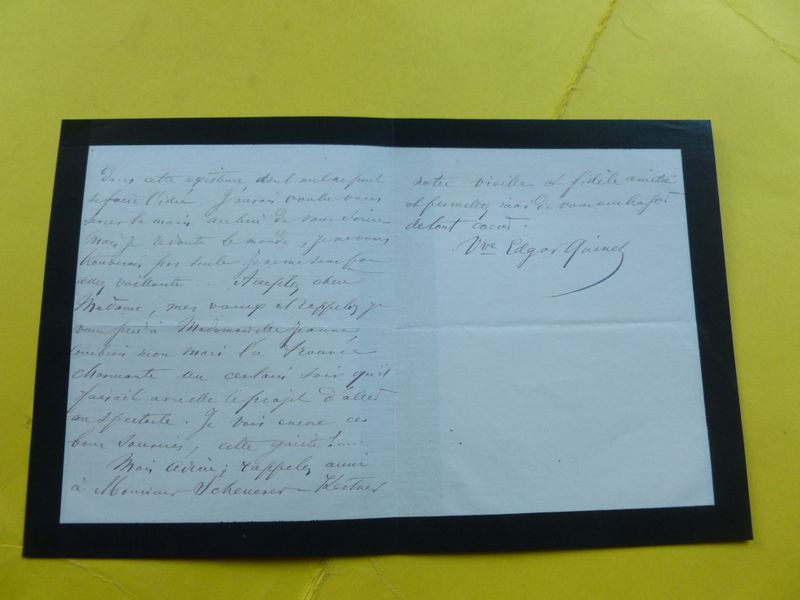 Dans cette existence dont nul ne peut
se faire l'idée. J'aurais voulu vous
serrer la main au lieu de vous écrire
mais je redoute le monde, je ne vous
trouverais pas seule je ne me sens pas
assez vaillante. Acceptez chère
Madame, mes vœux et rappelez je
vous prie à Mademoiselle Jeanne
combien mon mari l'a trouvée
charmante un certain soir qu'il
faisait avec elle le projet d'aller
au spectacle. Je vois encore ces
bons sourires, cette gaieté!...
Mais adieu; rappelez aussi
à Monsieur Scheurer-Kestner
notre vieille et fidèle amitié
et permettez moi de vous embrasser
de tout cœur.
Vve Edgar Quinet